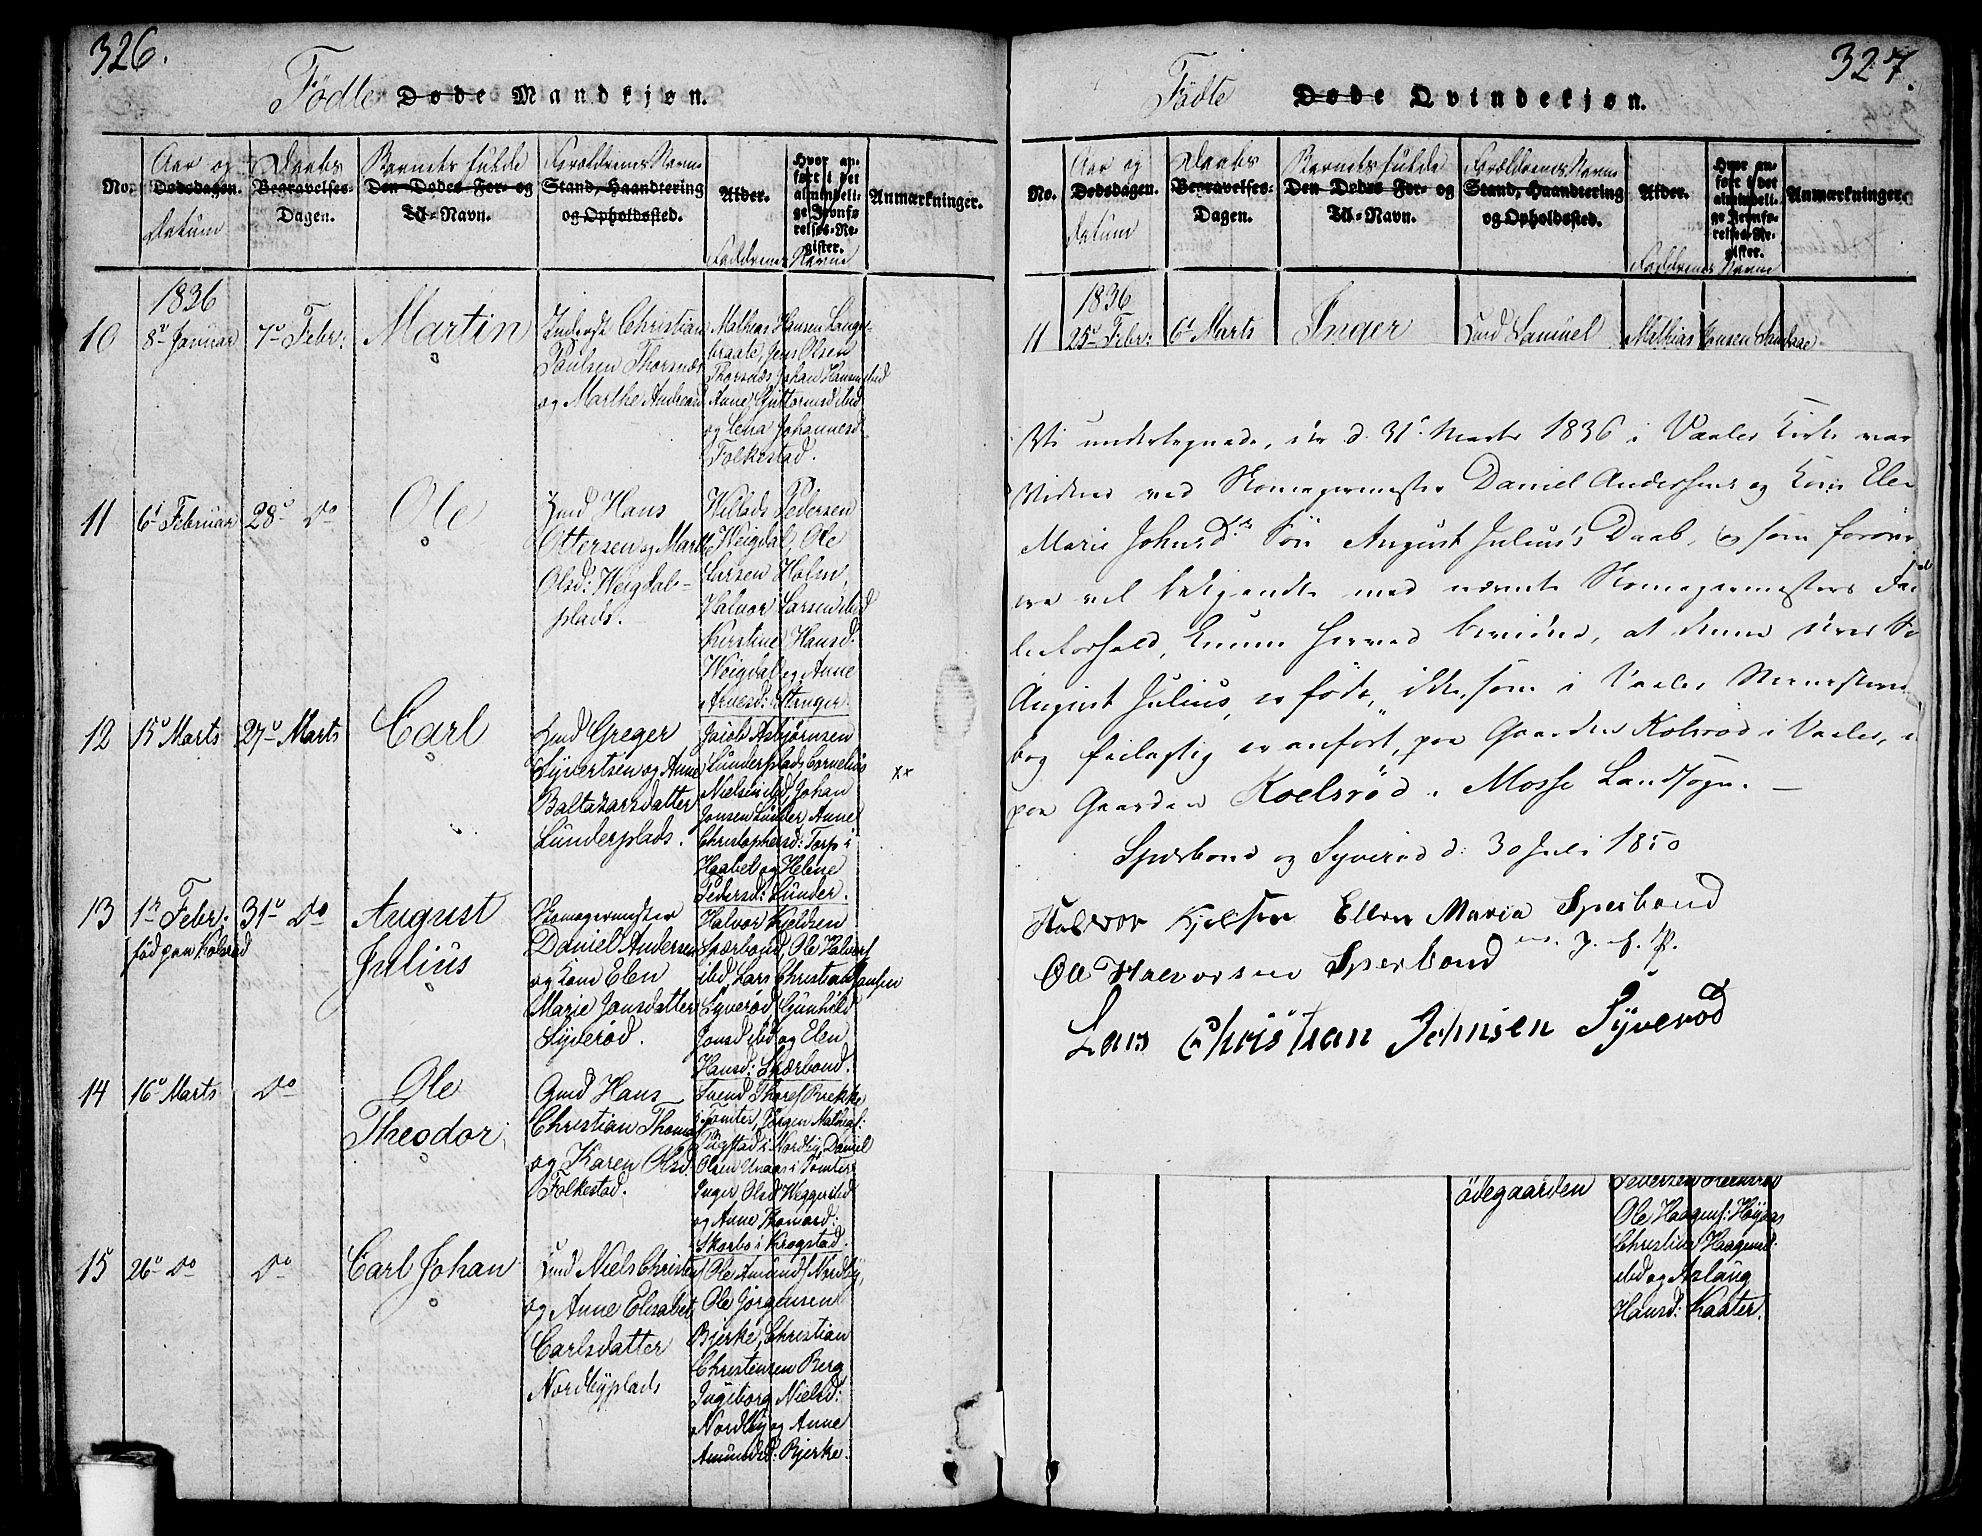 326.
Födte Døde Mandkjøn.
No.
Aar og Dødsdagen. Datum
Daabs Begravelses-Dagen.
Barnets fulde Den Dødes For- og Til-Navn.
Forældrenes Navne Stand, Haandtering og Opholdssted.
Alder.
Hvor anført i det almindelige Jevnførelses-Register.
Faddrenes Navne
Anmærkninger.
1836
10
8de Januar
7de Febr:
Martin
Inderst Christian
Paulsen Thorsnæs
og Marthe Andreasd
Mathias Hansen Lange-
braate, Jens Olsen
Thorsnæs Johan Hansen ibid
Anne Guttormsd ibid
og Lena Johannesd
Folkestad.
11
6t Februar
28de Do
Ole
Hmd Hans
Ottersen og Marthe
Olsd: Weigdal-
plads.
Willads Pedersen
Weigdal, Ole
Larsen Holm,
Halvor Larsen ibid
Kirstine Hansd:
Weigdal og Anne
Arnesd: Stenger.
12
15de Marts
27de Marts
Carl
Hmd Greger
Syvertsen og Anne
Baltazarsdatter
Lunderplads.
Jacob Asbjørnsen
Lunderplads Cornelius
Nielsen ibd, Johan
Jonsen Lunder Anne
Christophersd: Torp i
Haabel og Helene
Pedersd: Lunder.
xx
13
1t Febr:
fød paa Kolsrød
31de Do
August
Julius
Skomagermester
Daniel Andersen
og Kone Elen
Marie Jonsdatter
Syverød.
Halvor Kjeldsen
Spærbond, Ole Halvors
ibd, Lars Christian Jansen
Syverød, Gunhild
Jonsd ibd og Elen
Hansd: Skærbond.
14
16de Marts
Do
Ole
Theodor.
Gmd Hans
Christian Thomas
og Karen Olsd.
Folkestad.
Svend Thores Brekke
i Tomter, Jørgen Mathias:
Tugstad i Nordby, Daniel
Olsen Unaas i Tomter
Inger Olsd Wegger ibd
og Anne Thomasd:
Skorbo i Krogstad.
15
26de Do
Do
Carl Johan
Hmd Niels Christens
og Anne Elisabet
Carlsdatter
Nordbyplads
Ole Amunds Nordby,
Ole Jørgensen
Bjerke, Christian
Christensen Berg
Ingeborg Nielsd:
Nordby og Anne
Amundsd: Bjerke.
327.
Födte Døde Qvindekjøn.
No.
Aar og Dødsdagen. Datum
Daabs Begravelses-Dagen.
Barnets fulde Den Dødes For- og Til-Navn.
Forældrenes Navne Stand, Haandtering og Opholdssted.
Alder.
Hvor anført i det almindelige Jevnførelses-Register.
Faddrenes Navne
Anmærkninger.
1836
11
25de Febr:
6t Marts
Inger
Hmd Samuel
Mathias Jonsen
Vi undertegnede, der d. 31t Marts 1836 i Vaaler Kirke var
Vidner ved Skomagermester Daniel Anderssens og Kone Elen
Marie Johnsdtr Søn August Julius's Daab, og som forøvr
ere vel bekjendte med nævnte Skomagermesters Fa
lieforhold, kunne herved bevidne, at denne deres Sø
August Julius, er født, ikke, som i Vaaler Ministerial
bog feilagtig er anført, paa Gaarden Kolsrød i Vaaler, m
paa Gaarden Koelsrød i Mosse Landsogn. —
Spærbond og Syverød d: 30 Juli 1850
Halvor Kjelsen Ellen Maria Sperbond
Ole Halvorsen Sperbond m. f. P.
Lars Christian Johnsen Syverød
ødegaarden
Pedersen
Ole Haagens: Høyaas
Christine Haagensd:
ibd og Aslaug
Hansd: Kaater.